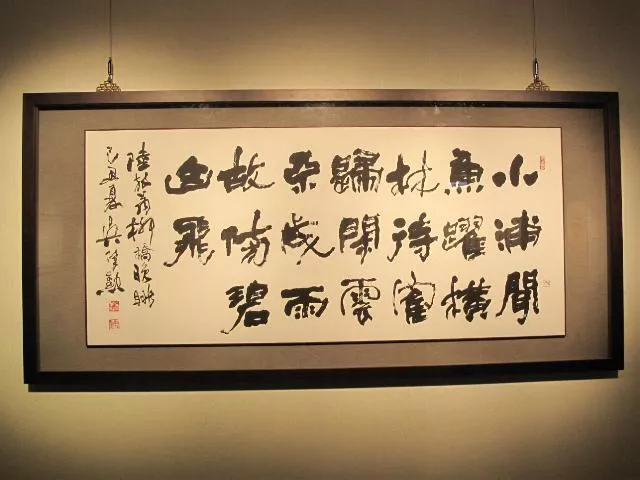 小浦聞
魚躍橫
林待隺
歸閑雲
不成雨
故傍碧
山飛
陸放翁柳橋晚眺
己丑